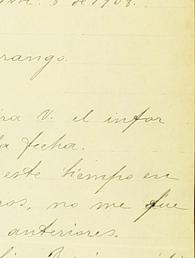 8 de 1908.
rango.
V. el infor
la fecha.
este tiempo en
os, no me fue
anteriores.